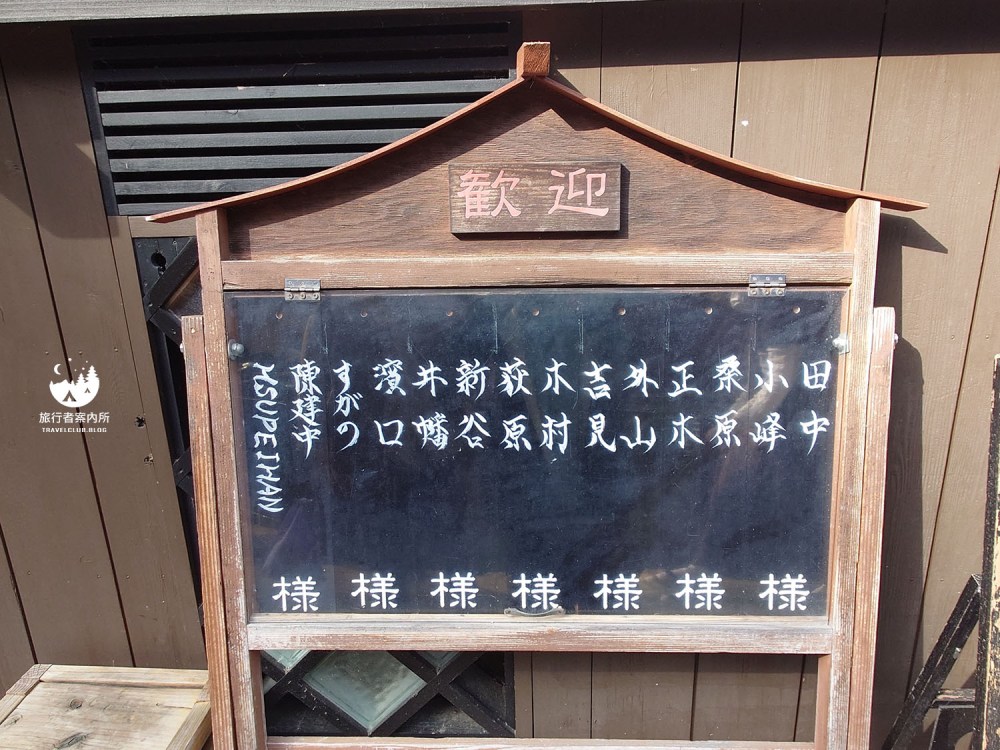 歓迎
田中
小峰
桑原
正木
外山
吉見
木村
荻原
新谷
井幡
濱口
すがの
陳建中
HSUPEIHAN
様 様 様 様 様 様 様
旅行者案內所
TRAVELCLUB.BLOG